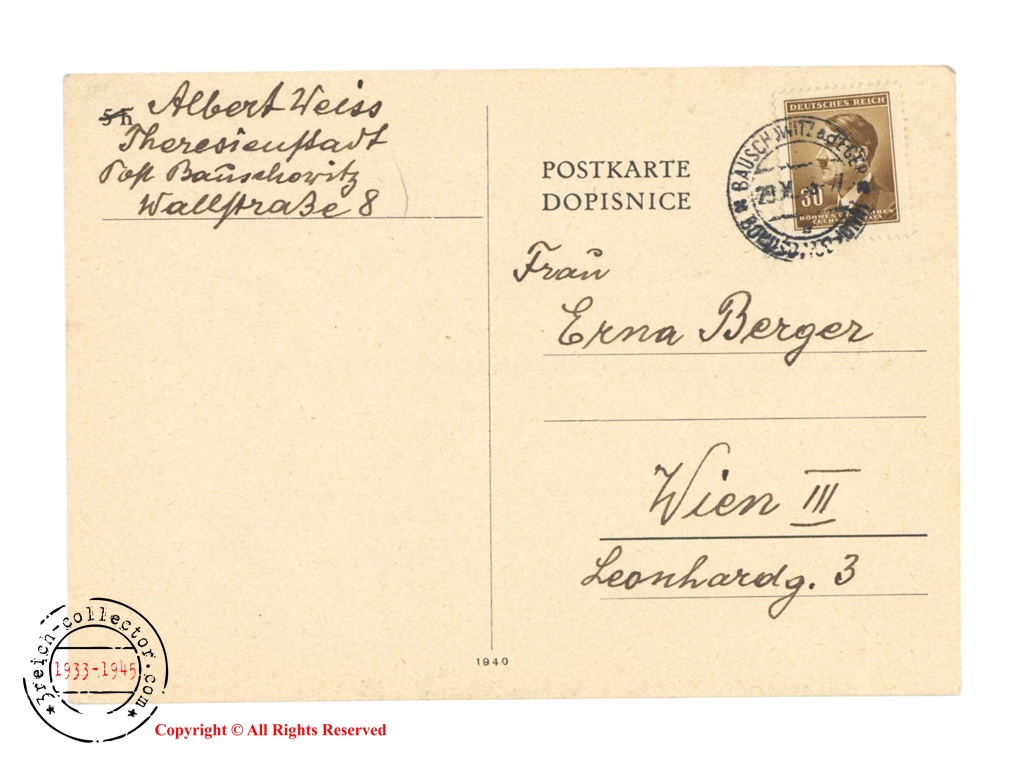 5 h
Albert Weiss
Theresienstadt
Post Bauschowitz
Wallstraße 8
POSTKARTE
DOPISNICE
DEUTSCHES REICH
30
BÖHMEN MÄHREN
BAUSCHOWITZ a.d. EGER
Frau
Erna Berger
Wien III
Leonhardg. 3
1940
3reich-collector.com
1933-1945
Copyright © All Rights Reserved